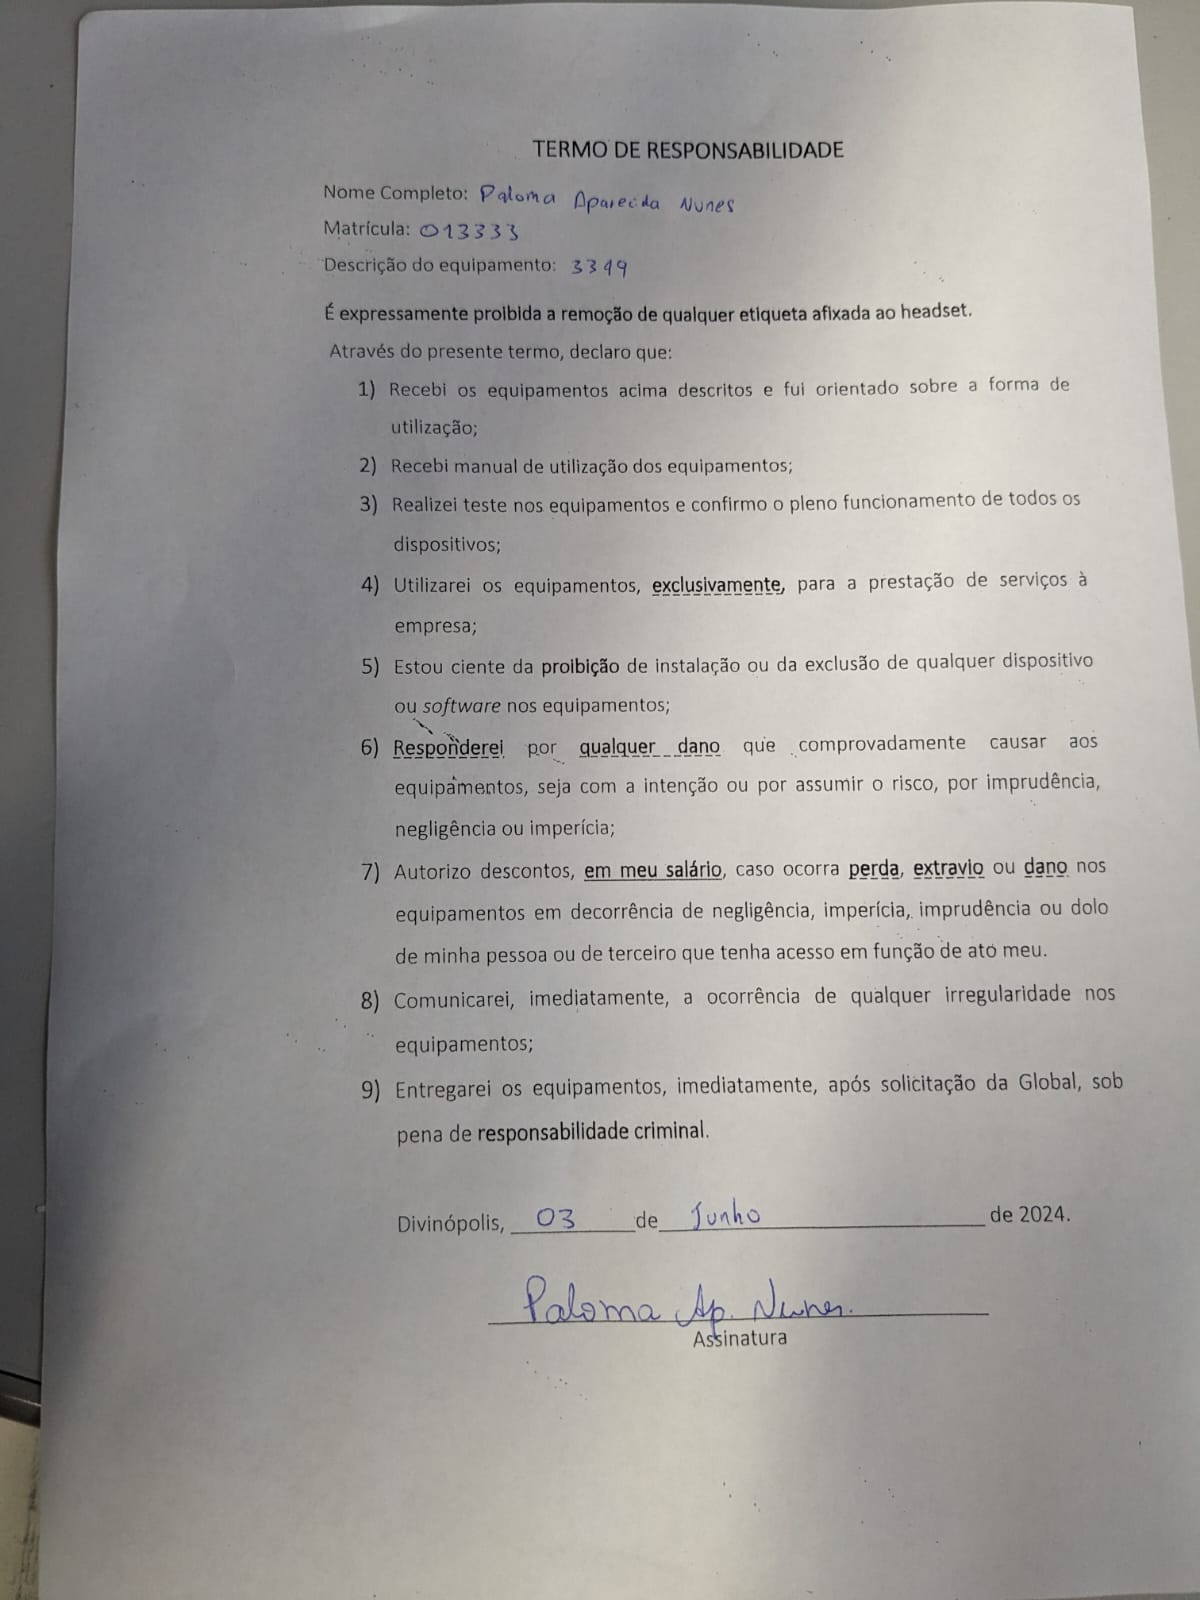 TERMO DE RESPONSABILIDADE
Nome Completo: Paloma Aparecida Nunes
Matrícula: 013333
Descrição do equipamento: 3349
É expressamente proibida a remoção de qualquer etiqueta afixada ao headset.
Através do presente termo, declaro que:
1) Recebi os equipamentos acima descritos e fui orientado sobre a forma de
utilização;
2) Recebi manual de utilização dos equipamentos;
3) Realizei teste nos equipamentos e confirmo o pleno funcionamento de todos os
dispositivos;
4) Utilizarei os equipamentos, exclusivamente, para a prestação de serviços à
empresa;
5) Estou ciente da proibição de instalação ou da exclusão de qualquer dispositivo
ou software nos equipamentos;
6) Responderei por qualquer dano que comprovadamente causar aos
equipamentos, seja com a intenção ou por assumir o risco, por imprudência,
negligência ou imperícia;
7) Autorizo descontos, em meu salário, caso ocorra perda, extravio ou dano nos
equipamentos em decorrência de negligência, imperícia, imprudência ou dolo
de minha pessoa ou de terceiro que tenha acesso em função de ato meu.
8) Comunicarei, imediatamente, a ocorrência de qualquer irregularidade nos
equipamentos;
9) Entregarei os equipamentos, imediatamente, após solicitação da Global, sob
pena de responsabilidade criminal.
Divinópolis, 03 de Junho de 2024.
Paloma Ap. Nunes.
Assinatura